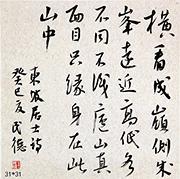 橫看成嶺側成
峯遠近高低各
不同不識廬山真
面目只緣身在此
山中
東坡居士詩
癸巳夏
31*31